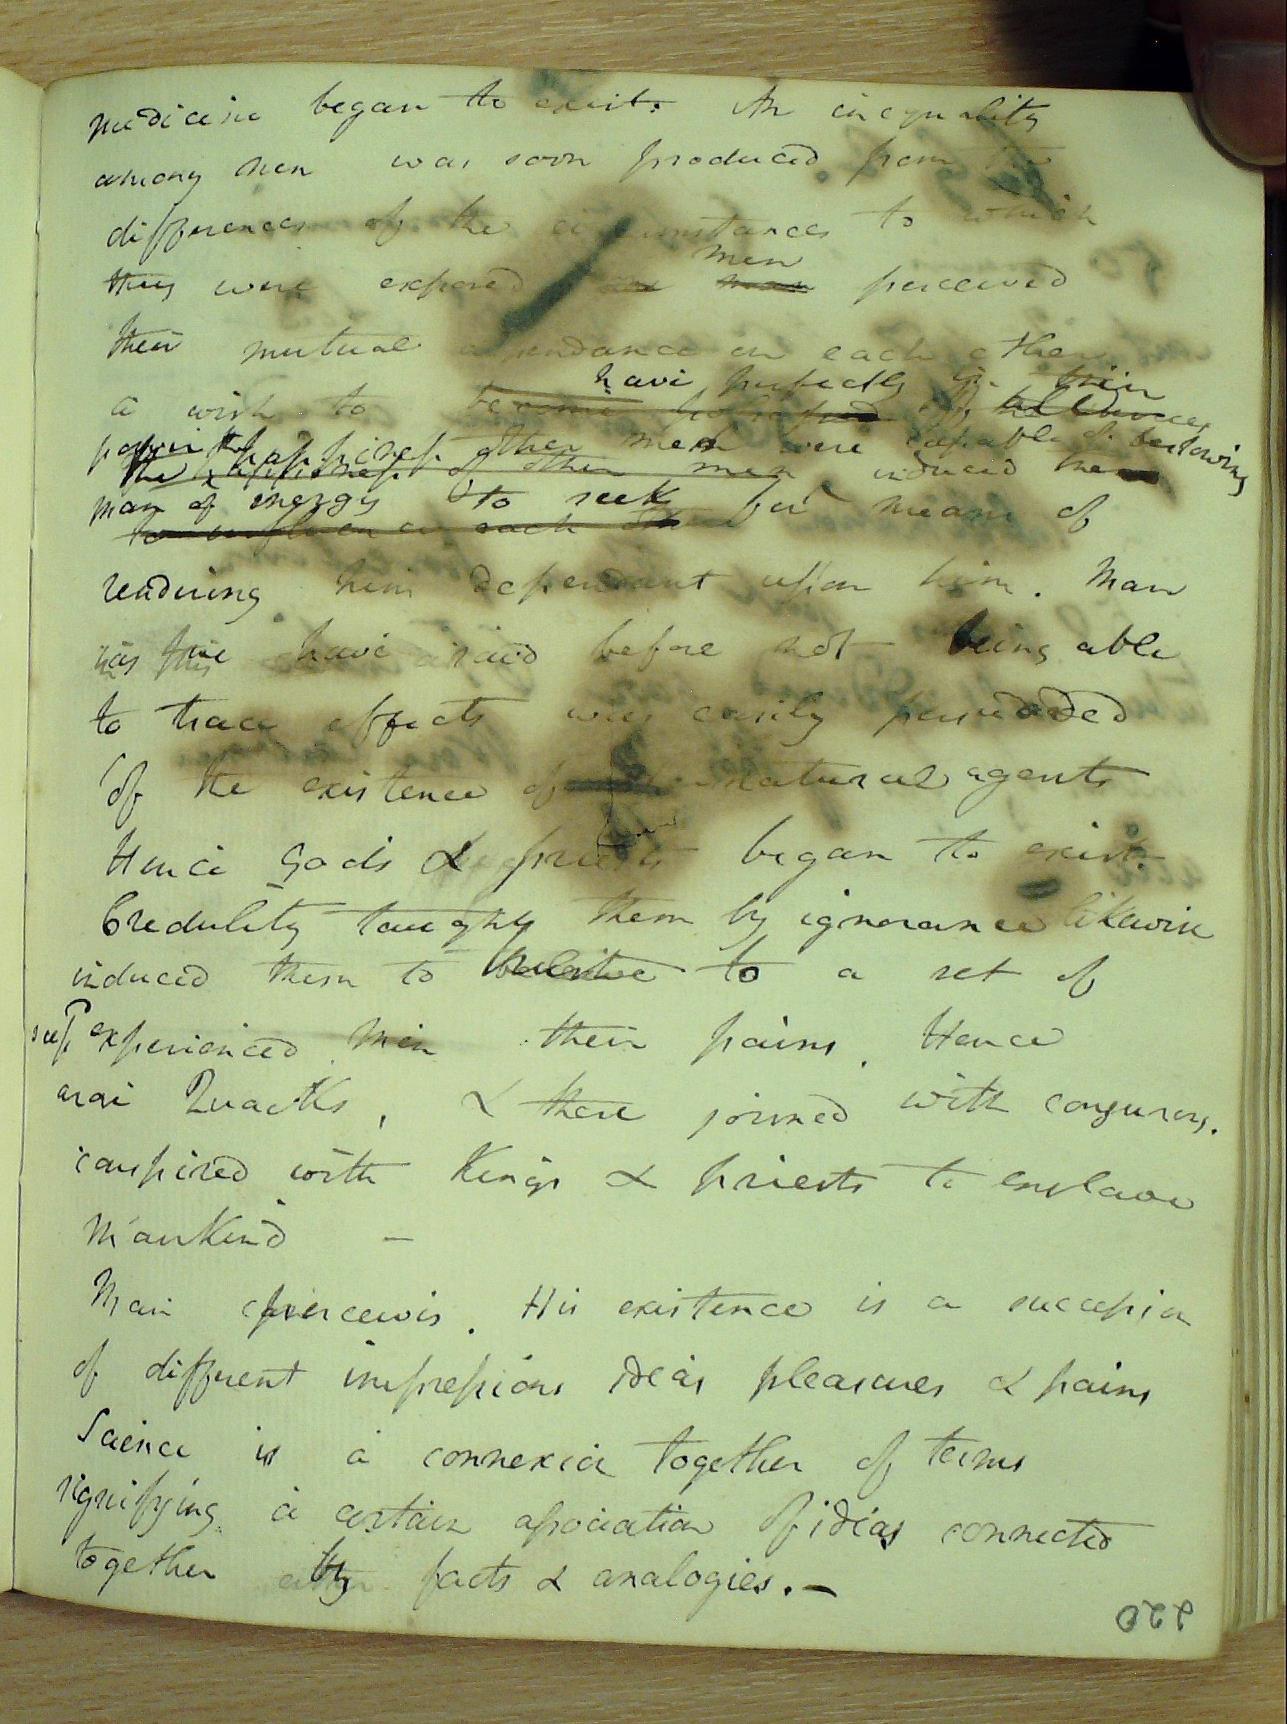 medicine began to exist. An inequality
among men was soon produced from the
differences of the circumstances to which
they were exposed men perceived
their mutual dependance on each other
have perfectly in their
a wish to become
power the happiness other men were capable of bestowing
the happiness of other men induced the
man of energy to seek for means of
to influence each oth
rendering him dependant upon him. Man
as we have said before not being able
to trace effects was easily persuaded
of the existence of natural agents
Hence Gods & priests began to exist.
Credulity taught them by ignorance likewise
induced them to to a set of
self experienced men their pains. Hence
arose Quacks, & these joined with conjurors.
conspired with Kings & priests to enslave
Mankind —
Man perceives. His existence is a succession
of different impressions ideas pleasures & pains
Science is a connexion together of terms
signifying a certain association of ideas connected
together by facts & analogies. —
220